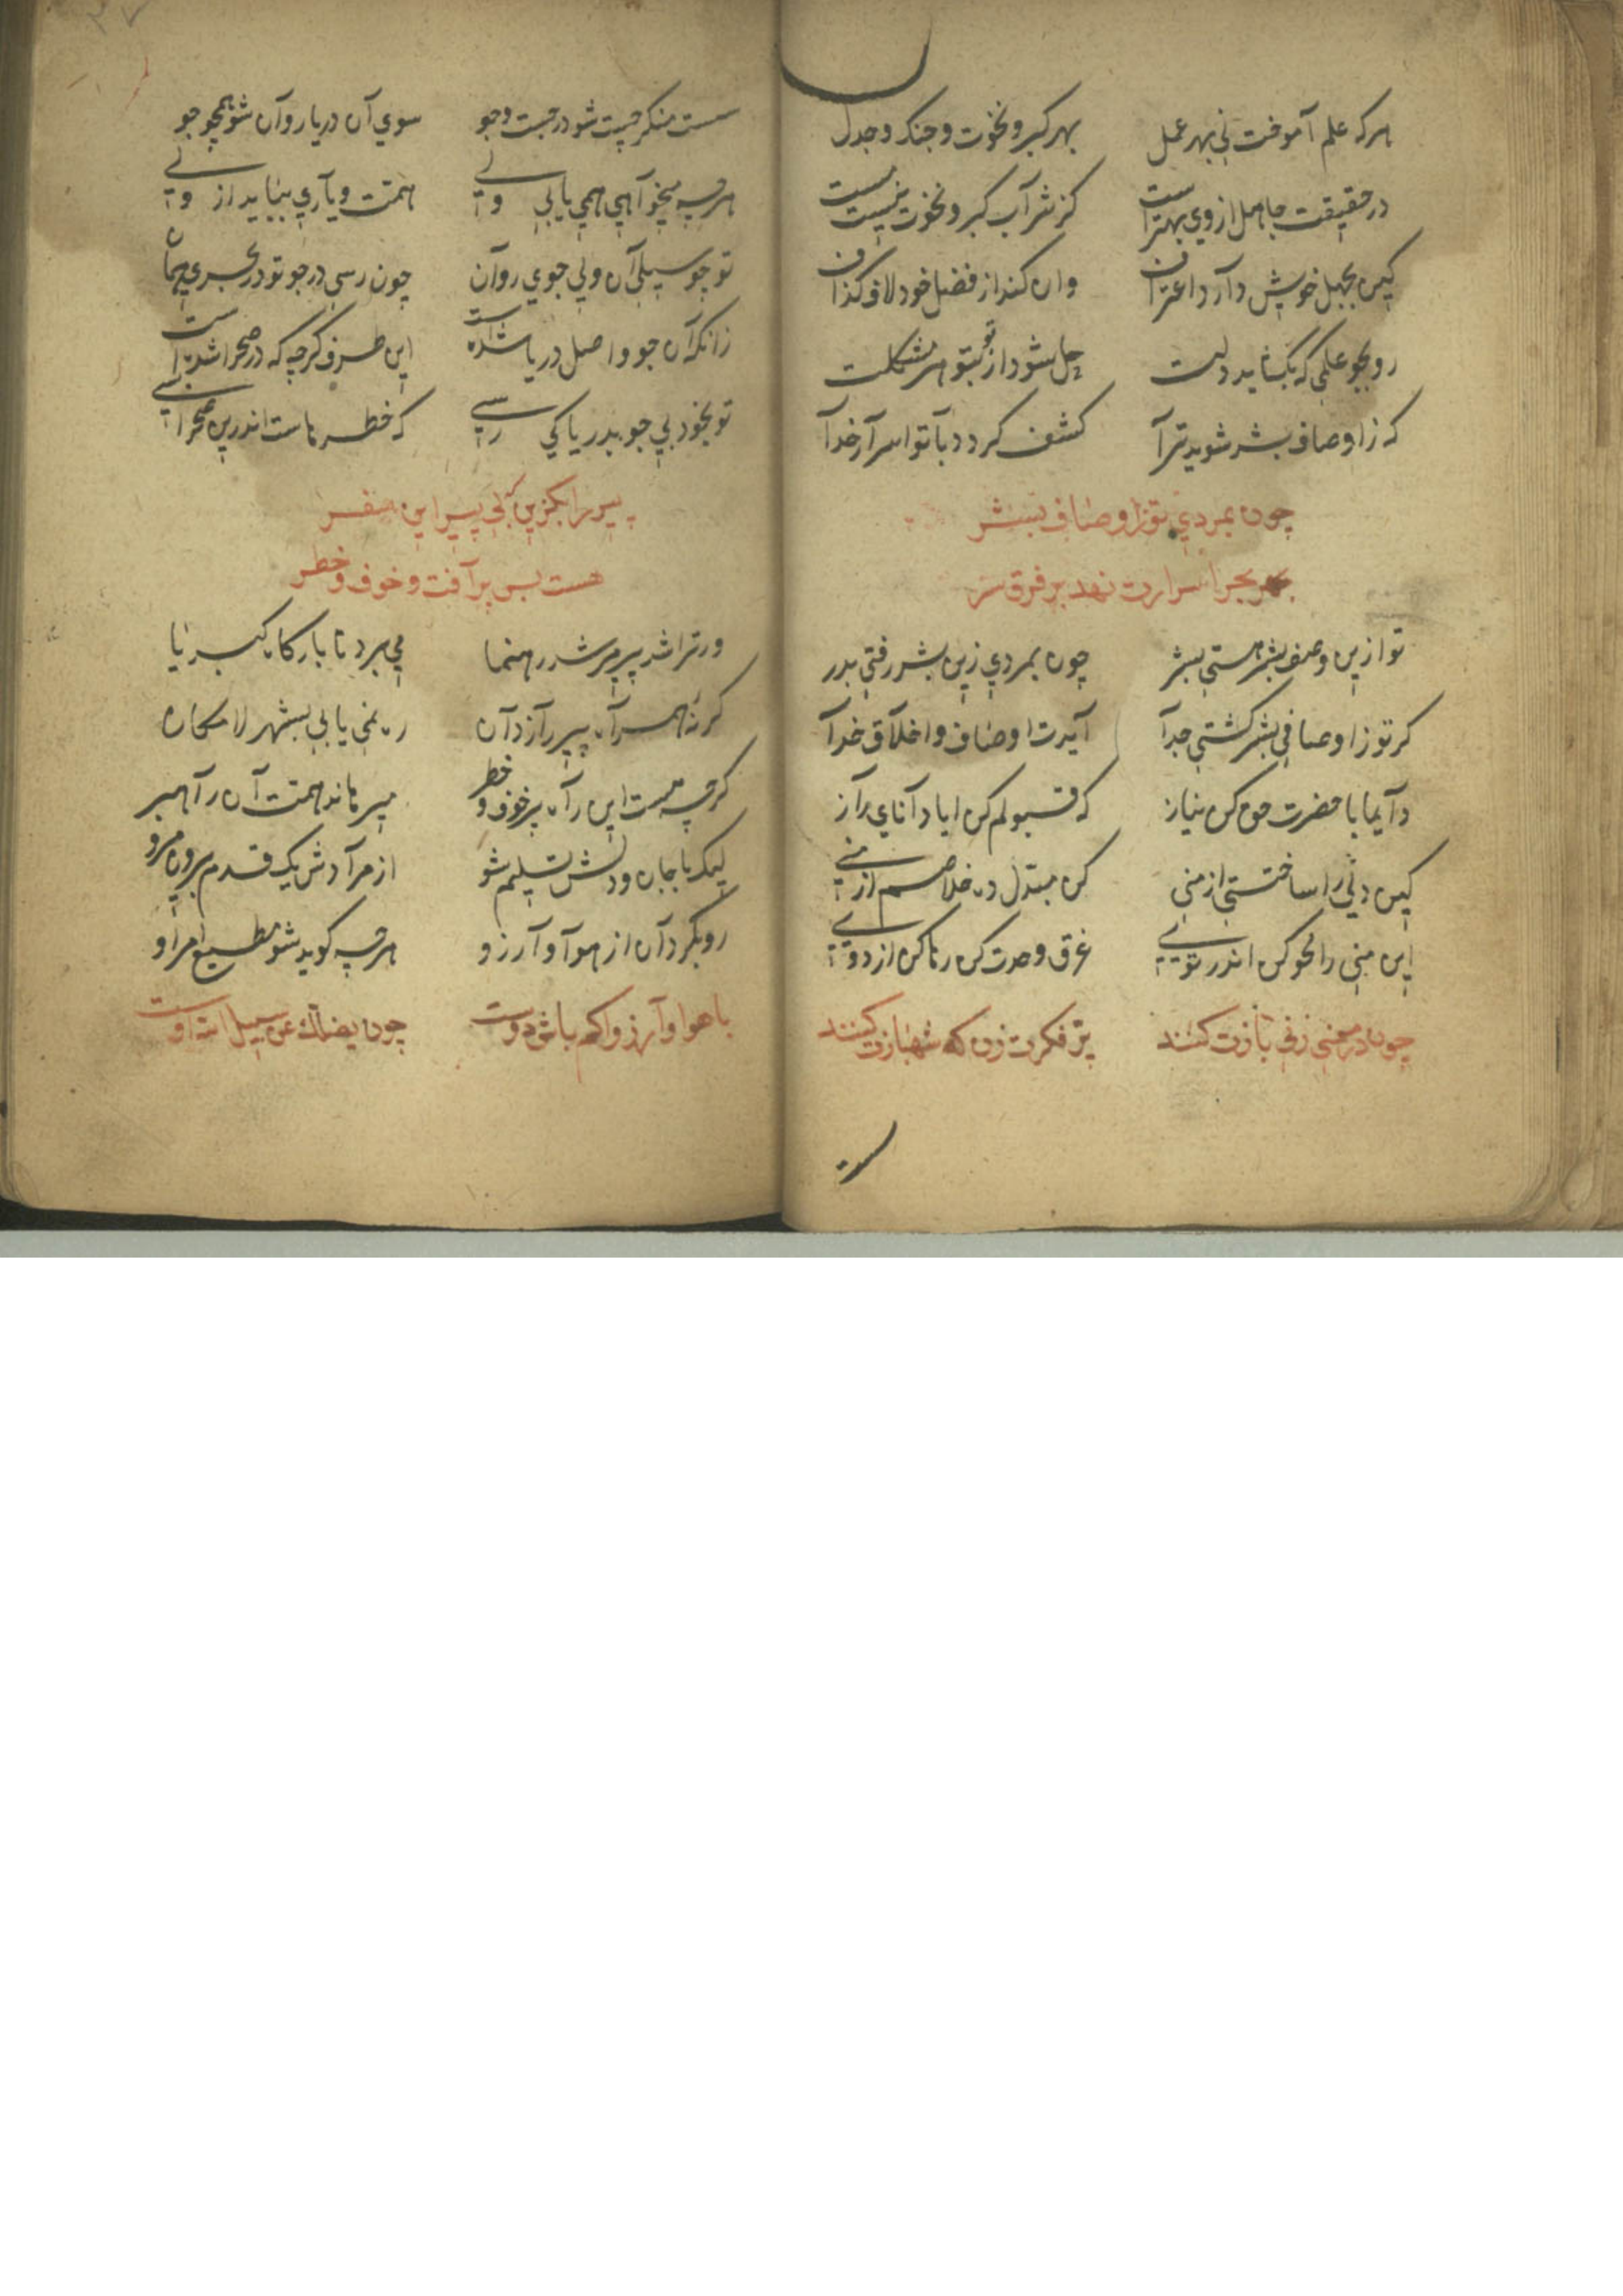 هرکه علم آموخت نی بهر عمل بهر کبر و نخوت و جنک و جدل
در حقیقت جاهل از وی بهتر است کز شراب کبر و نخوت نیست مست
کین بجهل خویش دارد اعتراف وان کند از فضل خود لاف و کذاف
رو بجو علمی که بکشاید دلت حل شود از تو بتو هر مشکلت
که ز اوصاف بشر شوید ترا کشف کردد با تو اسرار خدا
چون بمردی تو ز اوصاف بشر
بحر اسرارت نهد بر فرق سر
تو ازین وصف بشر هستی بشر چون بمردی زین بشر رفتی بدر
کر تو ز اوصاف بشر کشتی جدا آیدت اوصاف و اخلاق خدا
دایما با حضرت حق کن نیاز که قبولم کن ایا دانای راز
کین دنی را ساختستی از منی کن مبدل ده خلاصم از منی
این منی را محو کن اندر تویی غرق وحدت کن رها کن از دویی
چون در معنی زنی بازت کنند پر فکرت زن که شهبازت کنند
سست منکر چست شو در جست و جو سوی آن دریا روان شو همچو جو
هرچه میخواهی همی یابی ازو همت و یاری
تو چو سیلی آن ولی جوی روان چون رسی در جو تو در بحری همان
زانکه آن جو واصل دریا شده است این طرف کرچه که در صحرا شده است
تو بخود بی جو بدریا کی رسی که خطرهاست اندرین صحرا بسی
پیر را بکزین که بی پیر این سفر
هست بس پر آفت و خوف و خطر
ور ترا شد پیر مرشد رهنما می برد تا بارکاه کبریا
کر نه همراه پیر رازدان ره نمی یابی بشهر لامکان
کرچه هست این راه پر خوف و خطر میرهاند همت آن راهبر
لیک با جان و دلش تسلیم شو از مرادش یک قدم بیرون مرو
رو بکردان از هوا و آرزو هرچه کوید شو مطیع امر او
با هوا و آرزو کم باش دوست چون یضلک عن سبیل الله اوست
سست